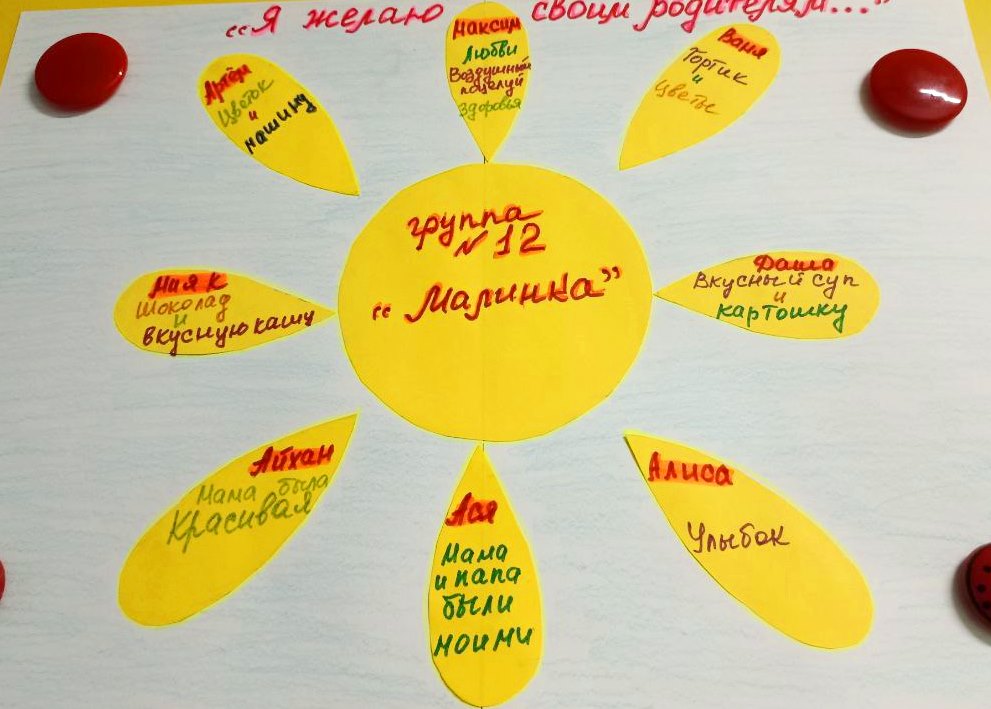 "Я желаю своим родителям..."
Артём
Цветок
и
машину
Максим
Любви
Воздушный
поцелуй
Здоровья
Ваня
Тортик
и
цветы
группа
№ 12
"Малинка"
Мия К
Шоколад
и
вкусную кашу
Даша
Вкусный суп
и
картошку
Айхан
Мама была
Красивая
Ася
Мама
и папа
были
моими
Алиса
Улыбок